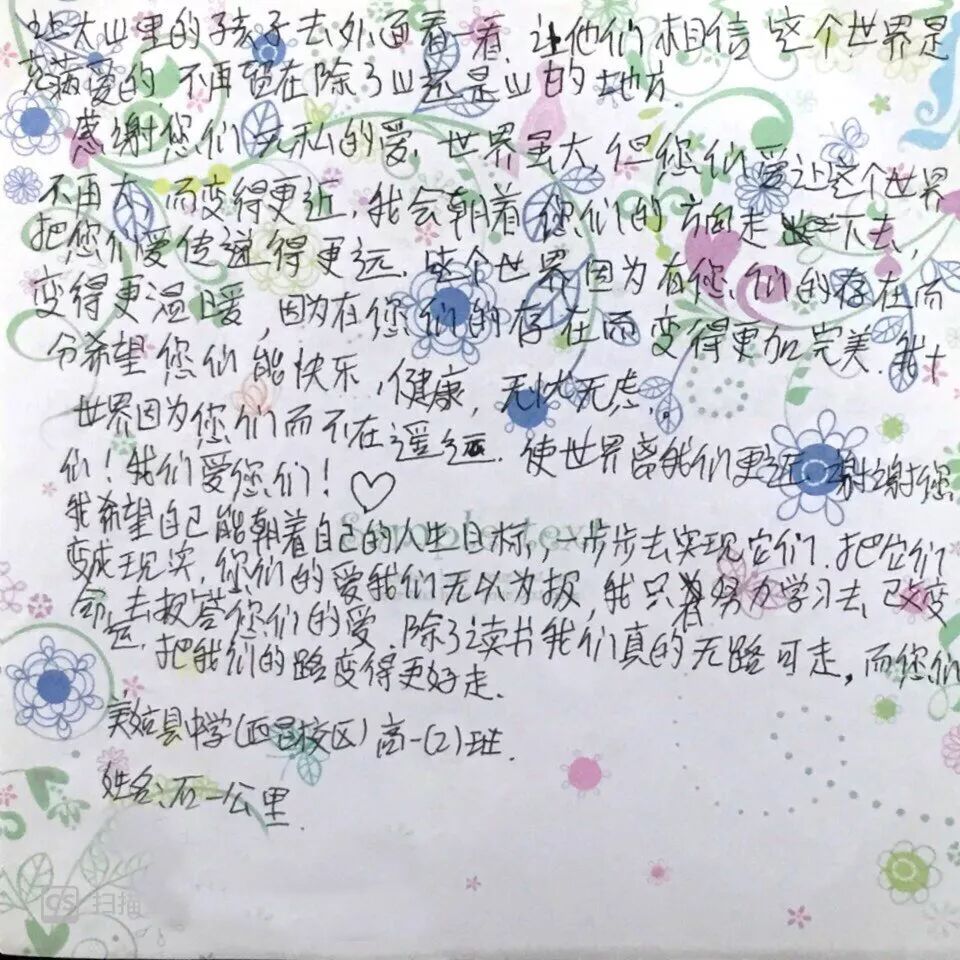 让大山里的孩子去外面看一看,让他们相信这个世界是
充满爱的.不再留在除了山还是山的地方.
感谢您们无私的爱,世界虽大,但您们爱让这个世界
不再大,而变得更近,我会朝着您们的方向走下去,
把您们爱传递得更远.这个世界因为有您们的存在而
变得更温暖,因为有您们的存在而变得更加完美.我十
分希望您们能快乐,健康,无忧无虑.
世界因为您们而不在遥远.使世界离我们更近.谢谢您
们!我们爱您们!♡
我希望自己能朝着自己的人生目标,一步步去实现它们.把它们
变成现实,您们的爱我们无以为报,我只有努力学习去改变
命运.去报答您们的爱.除了读书我们真的无路可走,而您们
把我们的路变得更好走.
美姑县中学(西昌校区)高一(2)班.
姓名:石一公里
Sample text
CS 扫描